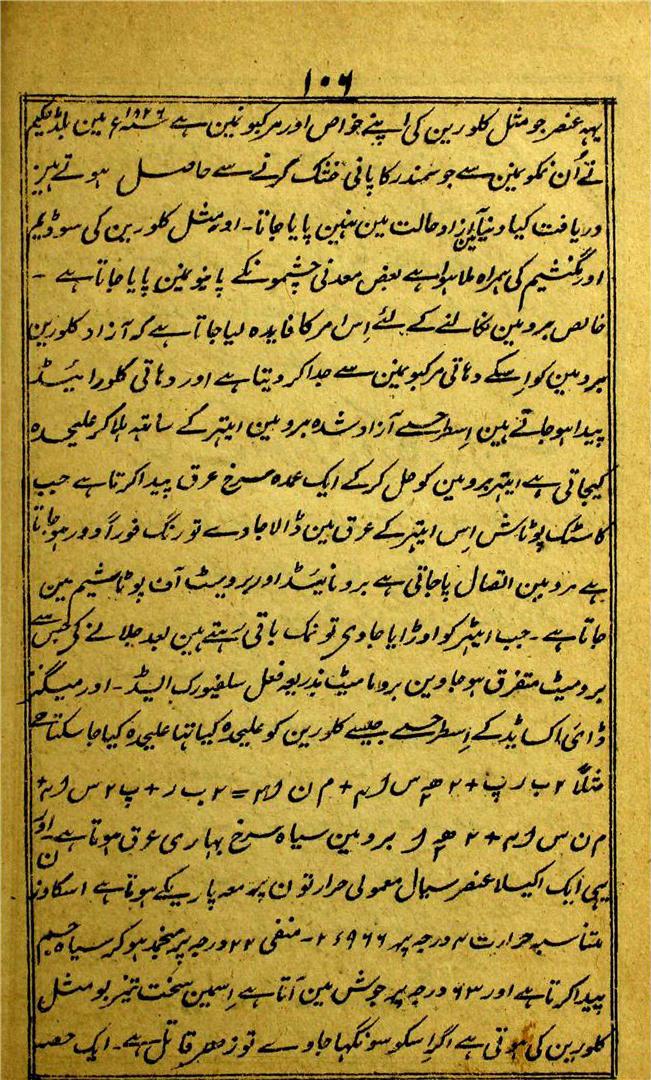 ۱۰۶
یہہ عنصر جو مثل کلورین کی اپنے خواص اور مرکبونمین ہے ۱۸۲۶ سنہ ء مین بلڈ حکیم
نے اُن نمکونمین سے جو سمندر کا پانی خشک کرنے سے حاصل ہوتے ہین
دریافت کیا دنیا مین آزاد حالت مین نہین پایا جاتا۔ اور مثل کلورین کی سوڈیم
اور مگنشیم کی ہمراہ ملا ہوا ہے بعض معدنی چشمونکے پانیونمین پایا جاتا ہے ۔
خالص برومین نکالنے کے لئے اِس امر کا فایدہ لیا جاتا ہے کہ آزاد کلورین
برومین کو اسکے دہاتی مرکبونمین سے جدا کر دیتا ہے اور دہاتی کلورائیڈ
پیدا ہو جاتے ہین اِسطرحسے آزاد شدہ برومین ایتہر کے ساتہہ ہلا کر علیحدہ
کیجاتی ہے ایتہر برومین کو حل کرکے ایک عمدہ سرخ عرق پیدا کرتا ہے جب
کاسٹک پوٹاش اِس ایتہر کے عرق مین ڈالا جاوے تو رنگ فوراً دور ہو جاتا
ہے برومین اتصال پا جاتی ہے برومائیڈ اور برومیٹ آف پوٹاشیم مین
جاتا ہے ۔ جب ایتہر کو اوڑایا جاوی تو نمک باقی رہتے ہین بعد جلانے کی جس سے
برومیٹ متفرق ہو جاوین برومامیٹ بذریعہ فعل سلفیورک ایسڈ ۔ اور میگنیز
ڈائی اکسایڈ کے اِسطرحسے جیسے کلورین کو علیحدہ کیا تہا علیحدہ کیا جا سکتا ہے
مثلاً ۲ ب ر پ + ۲ ھ۲ س ا۴ + م ن ا۲ = ۲ ب ر + پ۲ س ا۴ +
م ن س ا۴ + ۲ ھ۲ ا برومین سیاہ سرخ بہاری عرق ہوتا ہے۔ اور
یہی ایک اکیلا عنصر سیال معمولی حرارتون پر معہ پاریکے ہوتا ہے اسکا وزن
متناسبہ حرارت ۴ درجہ پر ۲ء۹۶۶ ۔ منفی ۲۲ درجہ پر منجمد ہو کر سیاہ جسم
پیدا کرتا ہے اور ۶۳ درجہ پر جوش مین آتا ہے اِسمین سخت تیز بو مثل
کلورین کی ہوتی ہے اگر اسکو سونگہا جاوے تو زہر قاتل ہے۔ ایک حصہ